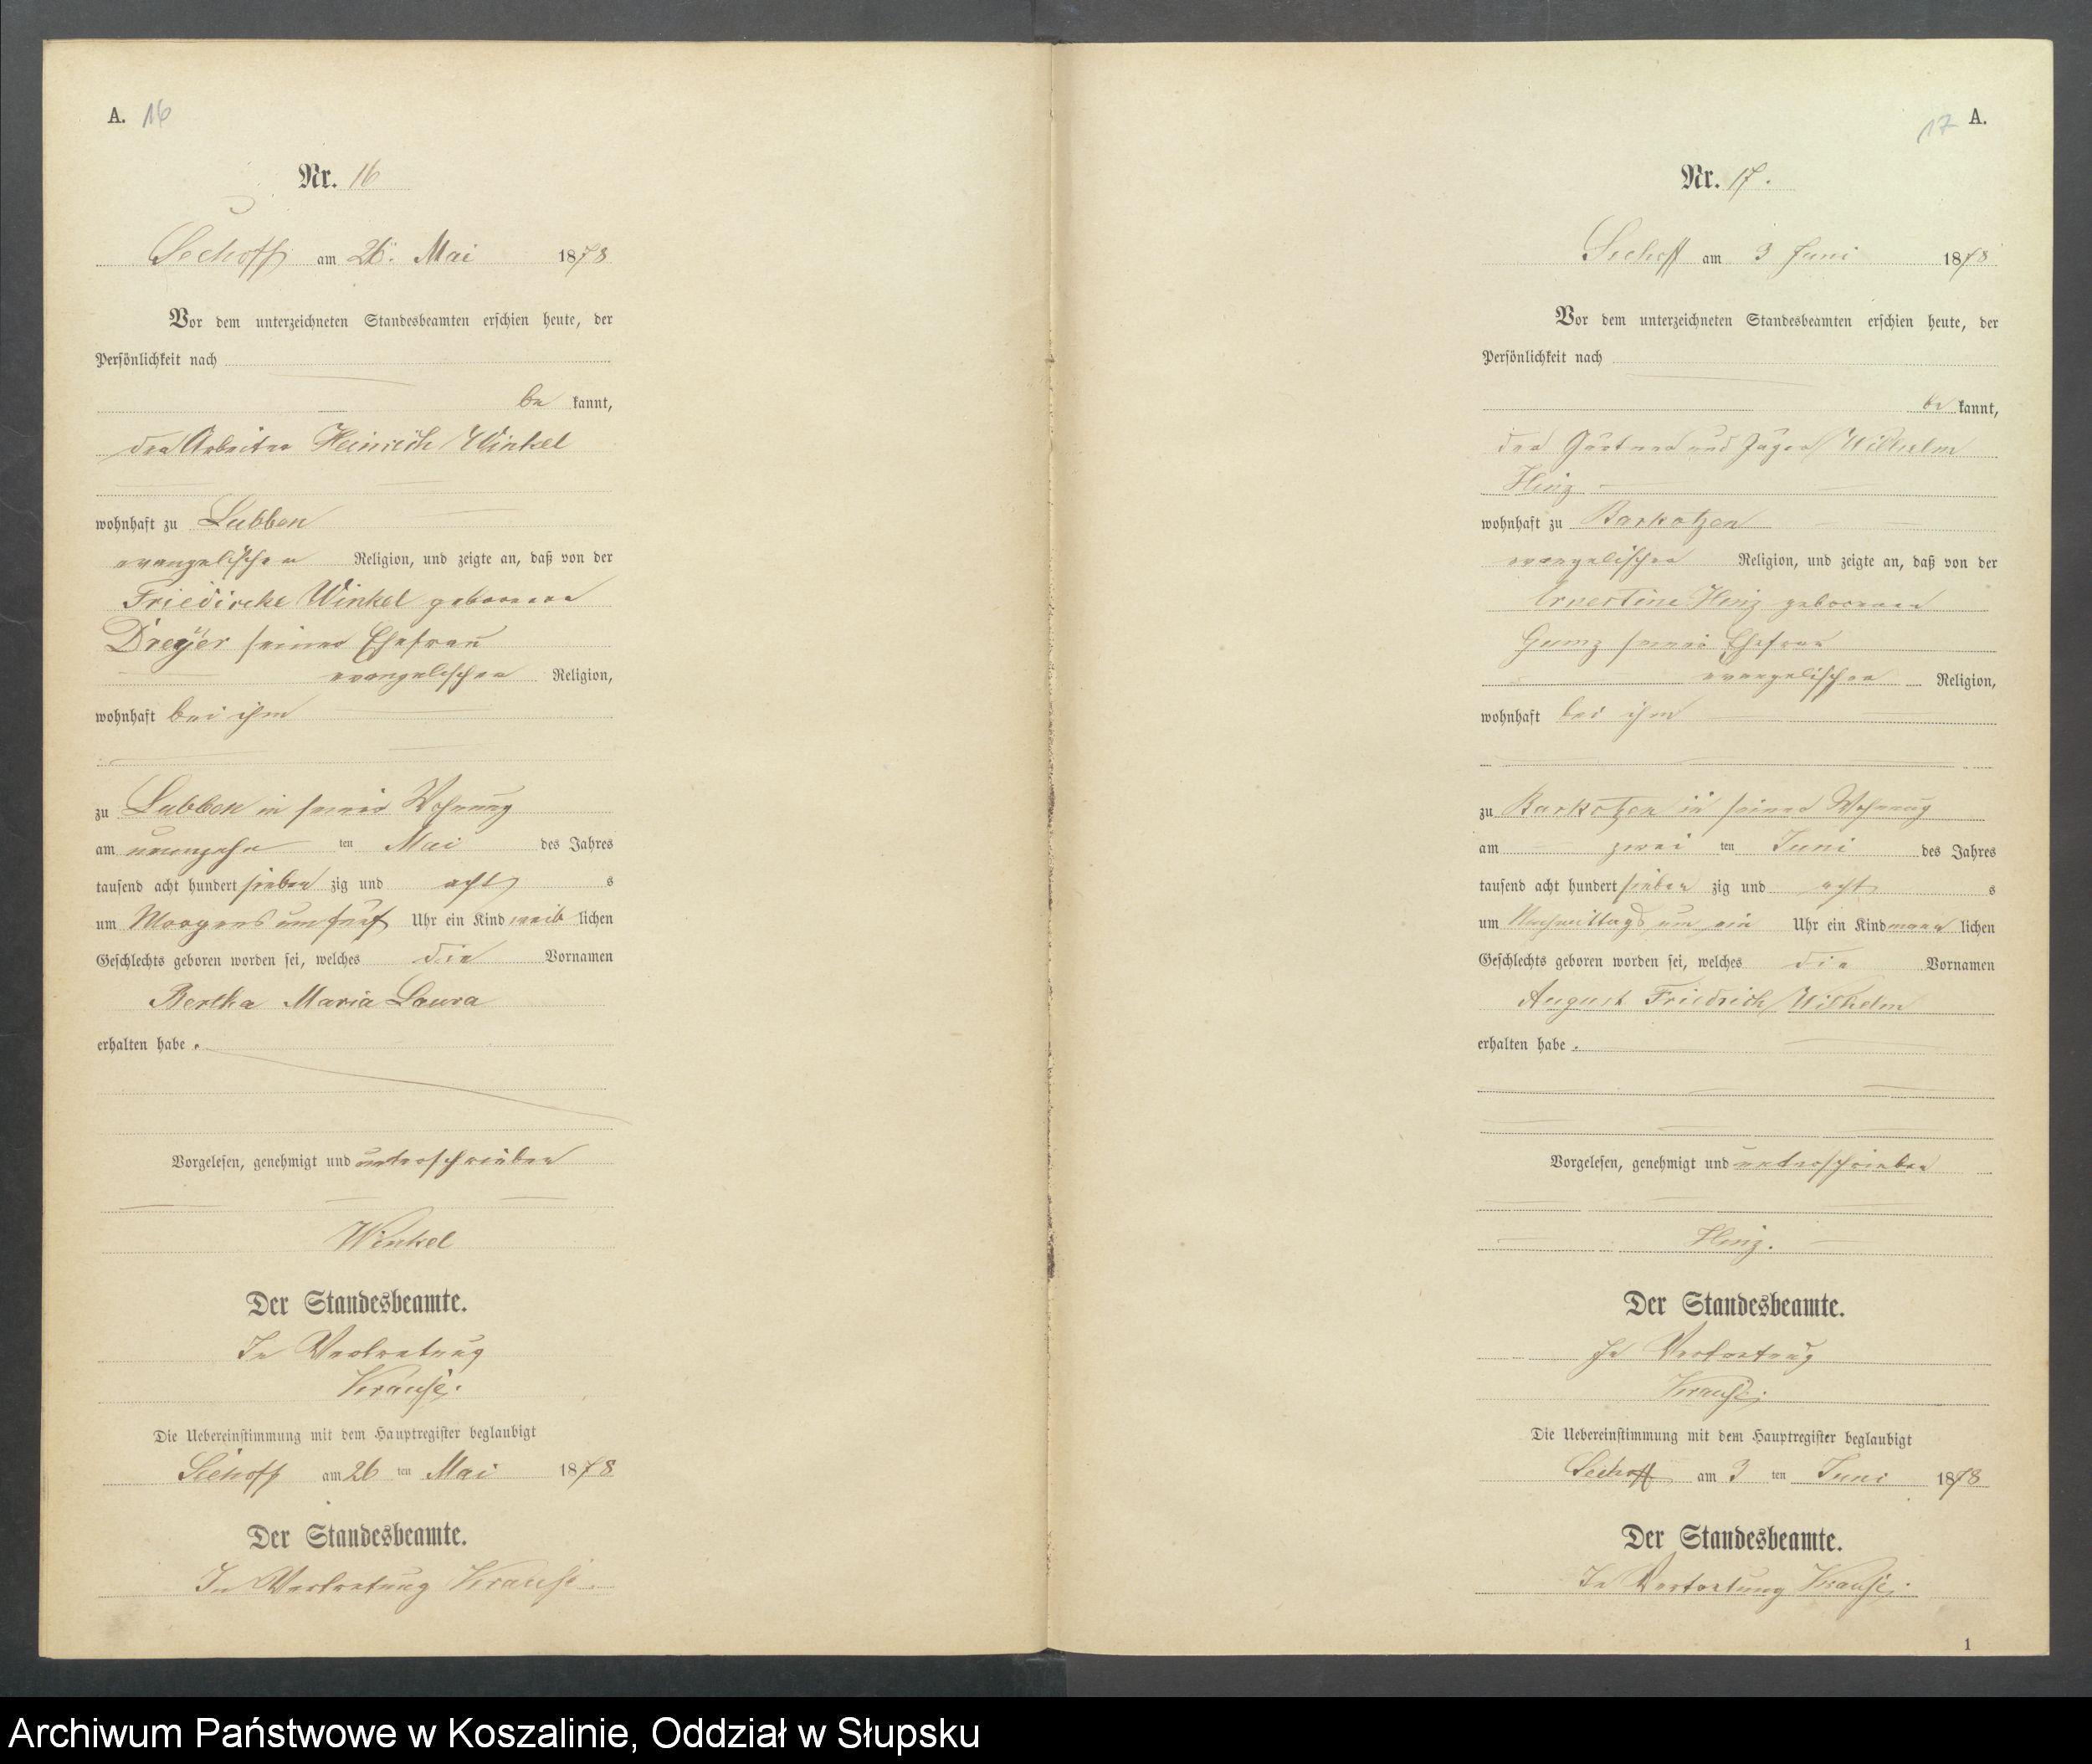 A. 16
Nr. 16
Seehoff am 26. Mai 1878
Vor dem unterzeichneten Standesbeamten erschien heute, der
Persönlichkeit nach
be kannt,
der Arbeiter Heinrich Winkel
wohnhaft zu Lubben
evangelischer Religion, und zeigte an, daß von der
Friediricke Winkel geborenen
Dreÿer seiner Ehefrau
evangelischer Religion,
wohnhaft bei ihm
zu Lubben in seiner Wohnung
am neunzehn ten Mai des Jahres
tausend acht hundert sieben zig und acht s
um Morgens um fünf Uhr ein Kind weib lichen
Geschlechts geboren worden sei, welches die Vornamen
Bertha Maria Laura
erhalten habe.
Vorgelesen, genehmigt und unterschrieben
Winkel
Der Standesbeamte.
In Vertretung
Krause.
Die Uebereinstimmung mit dem Hauptregister beglaubigt
Seehoff am 26 ten Mai 1878
Der Standesbeamte.
In Vertretung Krause.
17 A.
Nr. 17.
Seehoff am 3 Juni 1878
Vor dem unterzeichneten Standesbeamten erschien heute, der
Persönlichkeit nach
be kannt,
der Gärtner und Jäger Wilhelm
Hinz
wohnhaft zu Barkotzen
evangelischer Religion, und zeigte an, daß von der
Ernestine Hinz geborenen
Gumz seiner Ehefrau
evangelischer Religion,
wohnhaft bei ihm
zu Barkotzen in seiner Wohnung
am zwei ten Juni des Jahres
tausend acht hundert sieben zig und acht s
um Nachmittags um ein Uhr ein Kind männ lichen
Geschlechts geboren worden sei, welches die Vornamen
August Friedrich Wilhelm
erhalten habe.
Vorgelesen, genehmigt und unterschrieben
Hinz.
Der Standesbeamte.
In Vertretung
Krause.
Die Uebereinstimmung mit dem Hauptregister beglaubigt
Seehoff am 3 ten Juni 1878
Der Standesbeamte.
In Vertretung Krause.
1
Archiwum Państwowe w Koszalinie, Oddział w Słupsku